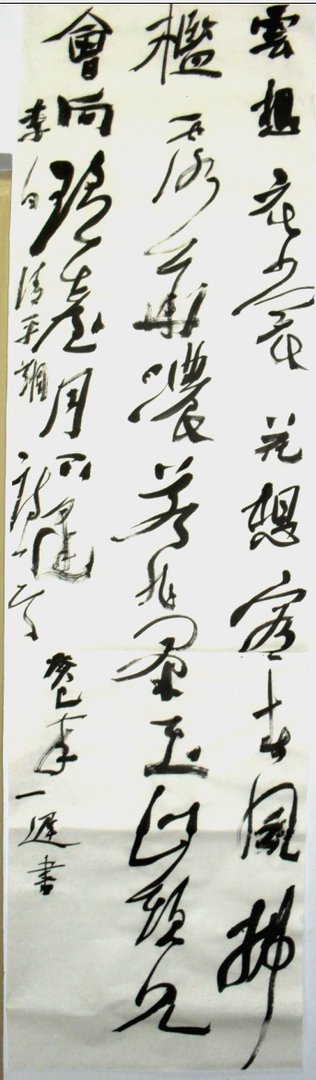 雲想衣裳花想容春風拂
檻露華濃若非羣玉山頭見
會向瑤臺月下逢
李白清平調詩一首 癸巳年一遲書